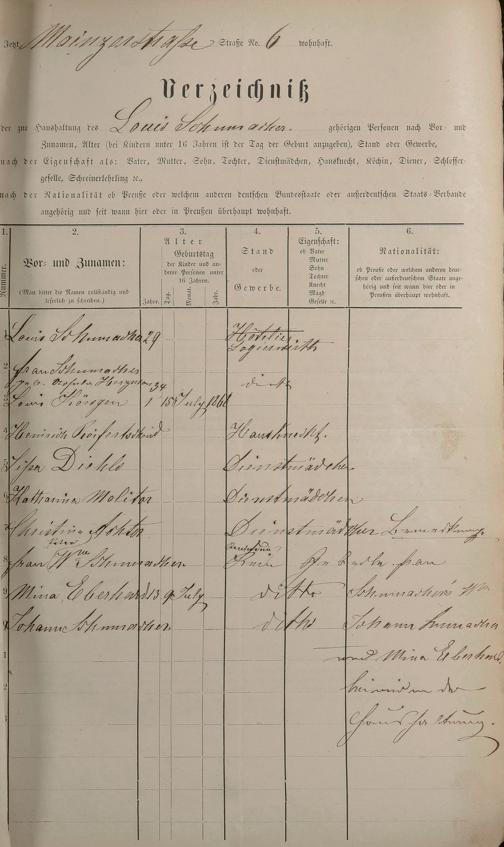 Jetzt Mainzerstraße Straße No. 6 wohnhaft.
Verzeichniß
der zur Haushaltung des Louis Schumacher. gehörigen Personen nach Vor- und
Zunamen, Alter (bei Kindern unter 16 Jahren ist der Tag der Geburt anzugeben), Stand oder Gewerbe,
nach der Eigenschaft als: Vater, Mutter, Sohn, Tochter, Dienstmädchen, Hausknecht, Köchin, Diener, Schlosser-
geselle, Schreinerlehrling ꝛc.,
nach der Nationalität ob Preuße oder welchem anderen deutschen Bundesstaate oder außerdeutschen Staats-Verbande
angehörig und seit wann hier oder in Preußen überhaupt wohnhaft.
1. 2. 3. 4. 5. 6.
Nummer.
Vor- und Zunamen:
(Man bittet die Namen vollständig und
leserlich zu schreiben.)
Alter
Jahre.
Geburtstag
der Kinder und an-
derer Personen unter
16 Jahren.
Tag. Monat. Jahr.
Stand
oder
Gewerbe.
Eigenschaft:
ob Vater
Mutter
Sohn
Tochter
Knecht
Magd
Geselle ꝛc.
Nationalität:
ob Preuße oder welchem anderen deut-
schen oder außerdeutschen Staate ange-
hörig und seit wann hier oder in
Preußen überhaupt wohnhaft.
Louis Schumacher 29
Logierwirth
2 frau Schumacher
34 ditto
3 Louis 1 15 July 186
4 Heinrich Hausknecht.
5 Lisa Diehls Dienstmädchen
6 Katharina Molitor Dienstmädchen
7 Christina Dienstmädchen Bemerkung.
8 frau Wwe Schumacher. frau
9 Mina Eberhard 13 9 July ditto Schumacher Wwe
Johann Schumacher ditto Johann Schumacher
1 und Mina Eberhard
2 der
1 Haushaltung.